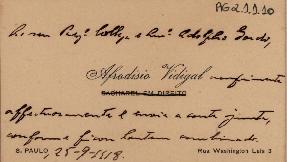 AG2.1.1.0
Ao seu Presº Collega e Amº Adolpho Gordo,
Afrodisio Vidigal cumprimenta
BACHAREL EM DIREITO
affectuosamente e envia a conta junta,
conforme ficou hontem combinado.
S. PAULO, 25-9-918. Rua Washington Luis 3